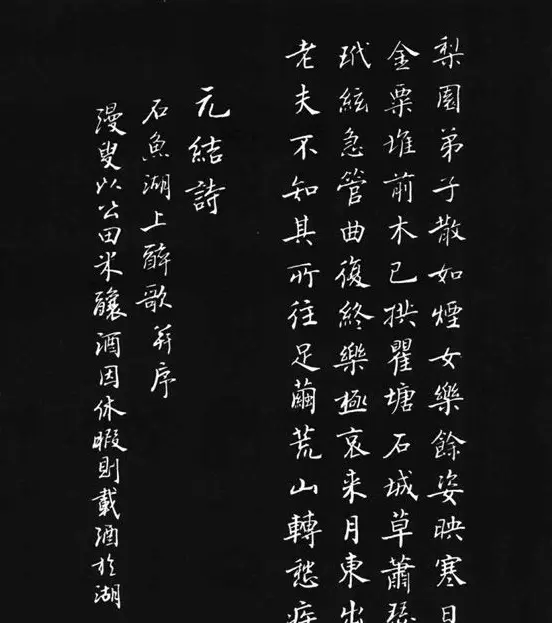 梨園弟子散如煙女樂餘姿映寒日
金粟堆前木已拱瞿塘石城草蕭瑟
玳絃急管曲復終樂極哀来月東出
老夫不知其所往足繭荒山轉愁疾
元結詩
石魚湖上醉歌并序
漫叟以公田米釀酒因休暇則載酒於湖